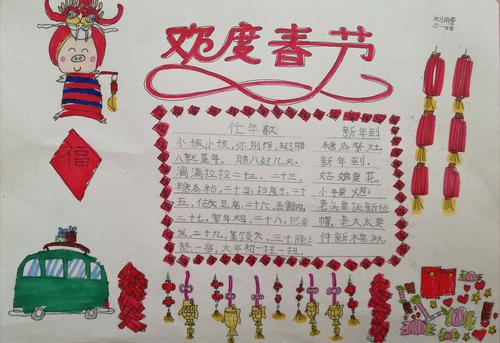 欢度春节
忙年歌
小孩小孩,你别馋,过了腊
八就是年。腊八过几天。
滴滴拉拉二十三。二十三
糖瓜粘,二十四,扫房子,二十
五,
二十七,宰年鸡,二十八,把面
发,二十九,蒸馒头,三十晚上
熬一宿,大年初一扭一扭。
新年到
糖瓜祭灶
新年到。
姑娘要花
小子要炮
老头要
帽,老太太要
福